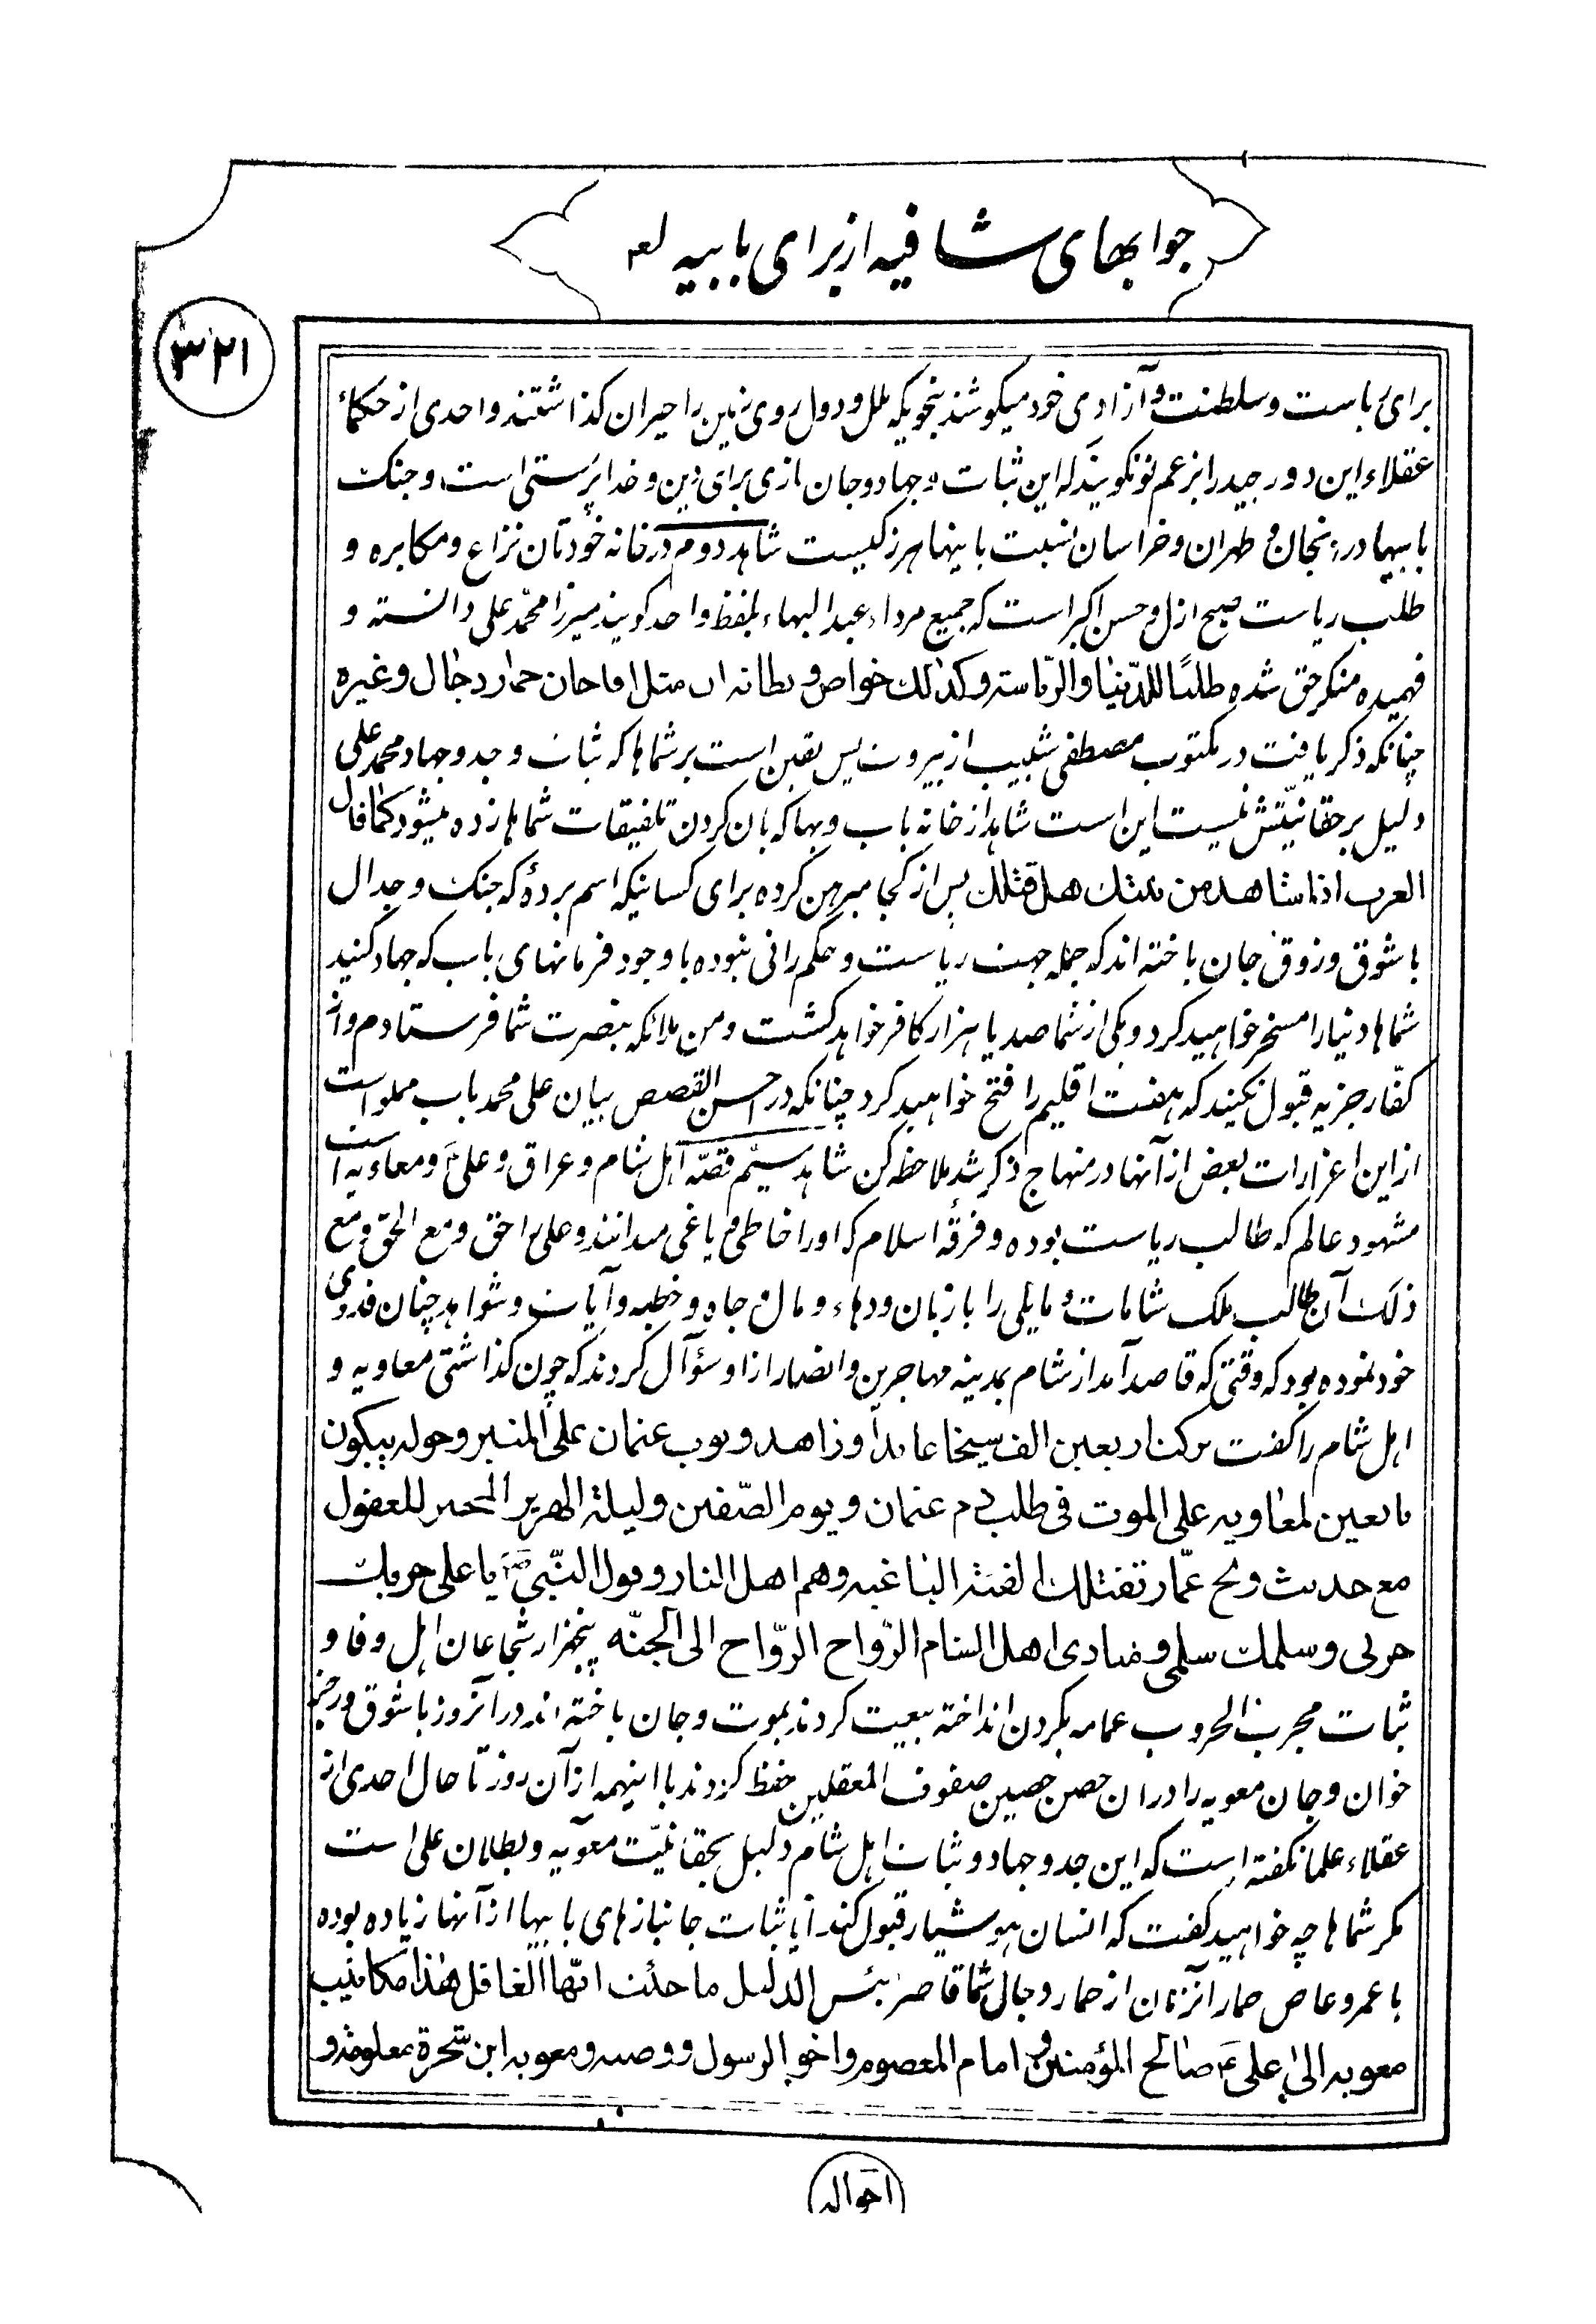 جوابهای شافیه از برای بابیه لعه
۳۲۱
برای ریاست و سلطنت و آزادی خود میکوشند بنحویکه ملل و دول روی زمین را حیران کذاشتند واحدی از حکماء
عقلاء این دور جدید را بزعم تو نکویند که این ثبات و جهاد و جان بازی برای دین و خدا پرستی است و جنک
بابیها در زنجان و طهران و خراسان نسبت باینها هرز کیست شاهد دوم در خانه خودتان نزاع و مکابره و
طلب ریاست صبح ازل و حسن اکبر است که جمیع مرداء عبدالبهاء بلفظ واحد کویند میرزا محمد علی دانسته و
فهمیده منکر حق شده طلبًا للدّنیا والرّیاسته وکذلک خواص و بطانه اش مثل اقاجان حمار دجال وغیره
چنانکه ذکر یافت در مکتوب مصطفی شلبیب از بیروت پس یقین است بر شماها که ثبات و جد و جهاد محمد علی
دلیل بر حقانیّتش نیست این است شاهد از خانه باب و بها که بان کردن تلفیقات شماها زده میشود کما قال
العرب اذا شاهد من بیتک هل قتلک پس از کجا مبرهن کرده برای کسانیکه اسم بردهٔ که جنک و جدال
با شوق و ذوق جان باخته اند که جمله جهت ریاست و حکم رانی نبوده با وجود فرمانهای باب که جهاد کنید
شماها دنیا را مسخر خواهید کرد و یکی از شما صد یا هزار کافر خواهد کشت و من ملائکه بنصرت شما فرستادم و از
کفّار جزیه قبول نکنید که هفت اقلیم را فتح خواهید کرد چنانکه در احسن القصص بیان علی محمد باب مملو است
از این اغرارات بعض از آنها در منهاج ذکر شد ملاحظه کن شاهد سیّم قصّه اهل شام و عراق و علی ع و معاویه است
مشهود عالم که طالب ریاست بوده و فرقهٔ اسلام که او را خاطی و یاغی میدانند و علی را حق و مع الحق و مع
ذلک آن طالب ملک شامات و مایلی را با زبان ودهاء و مال و جاه و خطبه و آیات و شواهد چنان فدوی
خود نموده بود که وقتی که قاصد آمد از شام بمدینه مهاجرین و انصار از او سؤآل کردند که چون کذاشتی معاویه و
اهل شام را کفت ترکت اربعین الف شیخا عابداً و زاهد و ثوب عثمان علی المنبر وحوله یبکون
بایعین لمعاویه علی الموت فی طلب دم عثمان و یوم الصّفین و لیلة الهریر المحیر للعقول
مع حدیث ویح عمّار تقتلک الفئة الباغیه وهم اهل النار وقول النّبی ص یا علی حربک
حربی وسلمک سلمی و منادی اهل الشام الرّواح الرّواح الی الجنّه پنجهزار شجاعان اهل وفا و
ثبات مجرب الحروب عمامه بکردن انداخته بیعت کردند بموت و جان باخته اند در آنروز با شوق و رجز
خوان و جان معویه را در ان حصن حصین صفوف المعقلین حفظ کردند با اینهمه از آن روز تا حال احدی از
عقلاء علما نکفته است که این جد و جهاد و ثبات اهل شام دلیل بحقانیّت معویه و بطلان علی است
مکر شماها چه خواهید کفت که انسان هوشیار قبول کند آیا ثبات جانبازهای بابیها از آنها زیاده بوده
یا عمرو عاص حمار آنزمان از حمار دجال شما قاصر بئس الدلیل ما جئت ایّها الغافل هذا مکاتیب
معویه الی علی ع صالح المؤمنین و امام المعصوم و اخو الرسول و وصیه و معویه ابن شّجرة ملعونه و
احواله